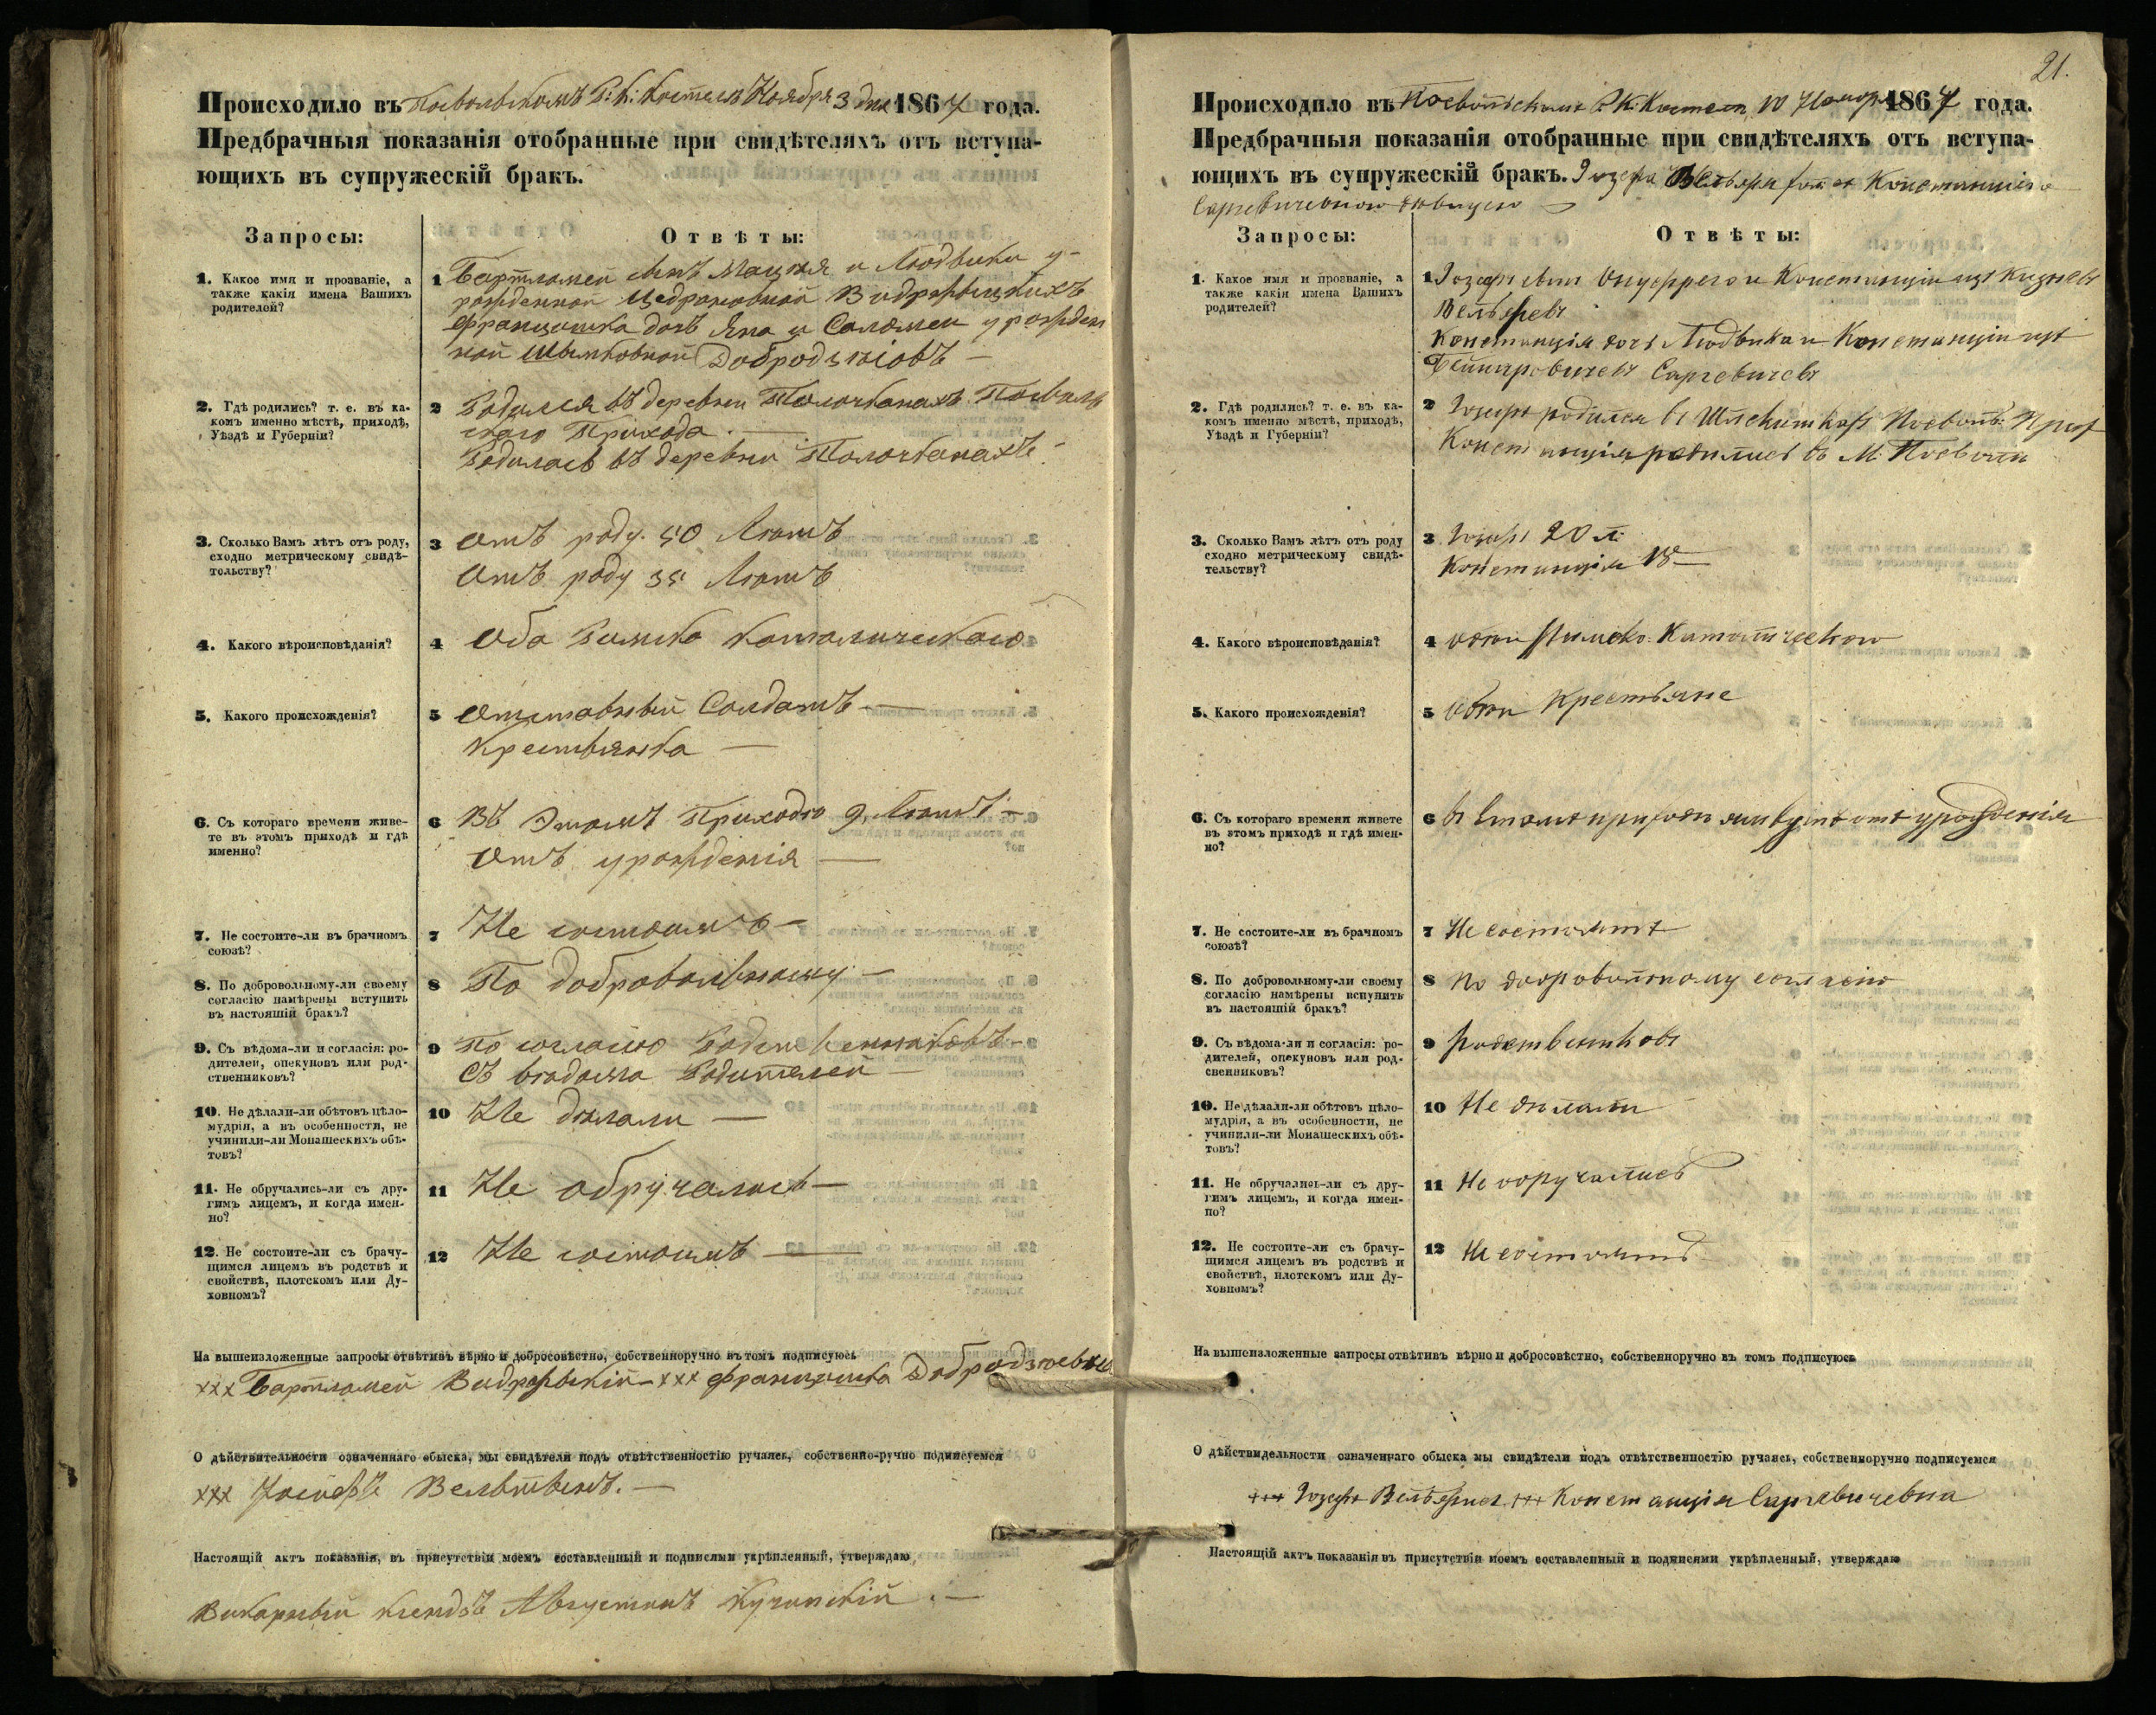 Происходило въ Посвольскомъ Р: К: Костелѣ Ноября 3 дня 1867 года.
Предбрачныя показанія отобранные при свидѣтеляхъ отъ вступа-
ющихъ въ супружескій бракъ.
Запросы:
Отвѣты:
1. Какое имя и прозваніе, а
также какія имена Вашихъ
родителей?
1 Бартломей сынъ Мацѣя и Людвики у-
рожденной
Францишка дочь Яна и Саломеи урожден
ной
2. Гдѣ родились? т. е. въ ка-
комъ именно мѣстѣ, приходѣ,
Уѣздѣ и Губерніи?
2 Родился въ деревни Толочканахъ Посволь
скаго Прихода. —
Родилась въ деревни Толочканахъ
3. Сколько Вамъ лѣтъ отъ роду,
сходно метрическому свидѣ-
тельству?
3 Отъ роду 50 Лѣтъ
Отъ роду 35 Лѣтъ
4. Какого вѣроисповѣданія?
4 Оба Римско Католическаго
5. Какого происхожденія?
5 Отставный Солдатъ. —
Крестьянка —
6. Съ котораго времени живе-
те въ этомъ приходѣ и гдѣ
именно?
6 Въ Этомъ Приходѣ 9, Лѣтъ. —
Отъ урожденія —
7. Не состоите-ли въ брачномъ
союзѣ?
7 Не состоимъ —
8. По добровольному-ли своему
согласію намѣрены вступить
въ настоящій бракъ?
8 По добровольному —
9. Съ вѣдома-ли и согласія: ро-
дителей, опекуновъ или род-
ственниковъ?
9 По согласію Родственниковъ —
Съ вѣдома Родителей —
10. Не дѣлали-ли обѣтовъ цѣло-
мудрія, а въ особенности, не
учинили-ли Монашескихъ обѣ-
товъ?
10 Не дѣлали —
11. Не обручались-ли съ дру-
гимъ лицемъ, и когда имен-
но?
11 Не обручались —
12. Не состоите-ли съ брачу-
щимся лицемъ въ родствѣ и
свойствѣ, плотскомъ или Ду-
ховномъ?
12 Не состоимъ —
На вышеизложенные запросы отвѣтивъ вѣрно и добросовѣстно, собственноручно въ томъ подписуюсь
xxx Бартломей — xxx Францишка
О дѣйствительности означеннаго обыска, мы свидѣтели подъ отвѣтственностію ручаясь, собственно-ручно подписуемся
xxx
Настоящій актъ показанія, въ присутствіи моемъ составленный и подписями укрѣпленный, утверждаю
Викарный ксендзъ Августинъ Кучинскій. —
21.
Происходило въ Посвольскомъ Р. К: Костелѣ 10 Ноября 1867 года.
Предбрачныя показанія отобранные при свидѣтеляхъ отъ вступа-
ющихъ въ супружескій бракъ.
Запросы:
Отвѣты:
1. Какое имя и прозваніе, а
также какія имена Вашихъ
родителей?
1 Іозефъ сынъ Онуфрего и Констанціи изъ
Констанція дочь Людвика и Констанціи изъ
Саргевичевъ
2. Гдѣ родились? т. е. въ ка-
комъ именно мѣстѣ, приходѣ,
Уѣздѣ и Губерніи?
2 Іозефъ родился въ Посволь:
Констанція родилась въ М. Посволи
3. Сколько Вамъ лѣтъ отъ роду
сходно метрическому свидѣ-
тельству?
3 Іозефъ 20 л.
Констанція 18 —
4. Какого вѣроисповѣданія?
4 обои Римско. Католическаго
5. Какого происхожденія?
5 обои Крестьяне
6. Съ котораго времени живете
въ этомъ приходѣ и гдѣ имен-
но?
6 въ Етомъ приходѣ живутъ отъ урожденія
7. Не состоите-ли въ брачномъ
союзѣ?
7 Не состоятъ
8. По добровольному-ли своему
согласію намѣрены вспупить
въ настоящій бракъ?
8 по добровольному согласію
9. Съ вѣдома-ли и согласія: ро-
дителей, опекуновъ или род-
свенниковъ?
9 Родственниковъ
10. Не дѣлали-ли обѣтовъ цѣло-
мудрія, а въ особенности, не
учинили-ли Монашескихъ обѣ-
товъ?
10 Не дѣлали
11. Не обручались-ли съ дру-
гимъ лицемъ, и когда имен-
но?
11 Не обручались
12. Не состоите-ли съ брачу-
щимся лицемъ въ родствѣ и
свойствѣ, плотскомъ или Ду-
ховномъ?
12 Не состоятъ
На вышеизложенные запросы отвѣтивъ вѣрно и добросовѣстно, собственноручно въ томъ подписуюсь
О дѣйствидельности означеннаго обыска мы свидѣтели подъ отвѣтственностію ручаясь, собственноручно подписуемся
+++ Іозефъ +++ Констанція Саргевичевна
Настоящій актъ показанія въ присутствіи моемъ составленный и подписями укрѣпленный, утверждаю